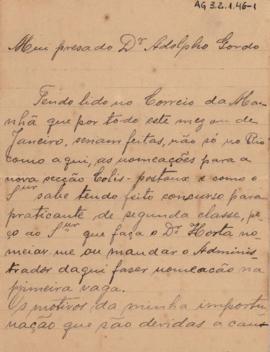 AG 3.2.1.46-1
Meu presado Dr Adolpho Gordo
Tendo lido no Correio da Ma-
nhã que por todo este mez ou de
Janeiro, seriam feitas, não só no Rio
como aqui, as nomeações para a
nova secção Colis-postaux e como o
Snr sabe tendo feito concurso para
praticante de segunda classe, pe-
ço ao Snr que faça o Dr Horta no-
meiar me ou mandar o Adminis-
trador daqui faser nomeação na
primeira vaga.
Os motivos da minha importu-
nação que são devidas a cau-